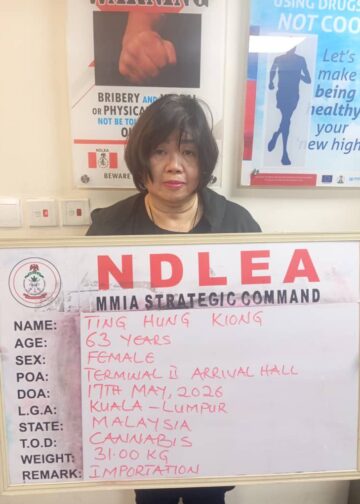 WARNING
BRIBERY AND
OR PHYSICAL
NOT BE TO
NDLEA
BEWARE
USING DRUGS
NOT COOL
Let's
make
being
healthy
your
new high
NDLEA
MMIA STRATEGIC COMMAND
NAME: TING HUNG KIONG
AGE: 63 YEARS
SEX: FEMALE
POA: TERMINAL II ARRIVAL HALL
DOA: 17TH MAY, 2026
L.G.A: KUALA-LUMPUR
STATE: MALAYSIA
T.O.D: CANNABIS
WEIGHT: 31.00 KG
REMARK: IMPORTATION